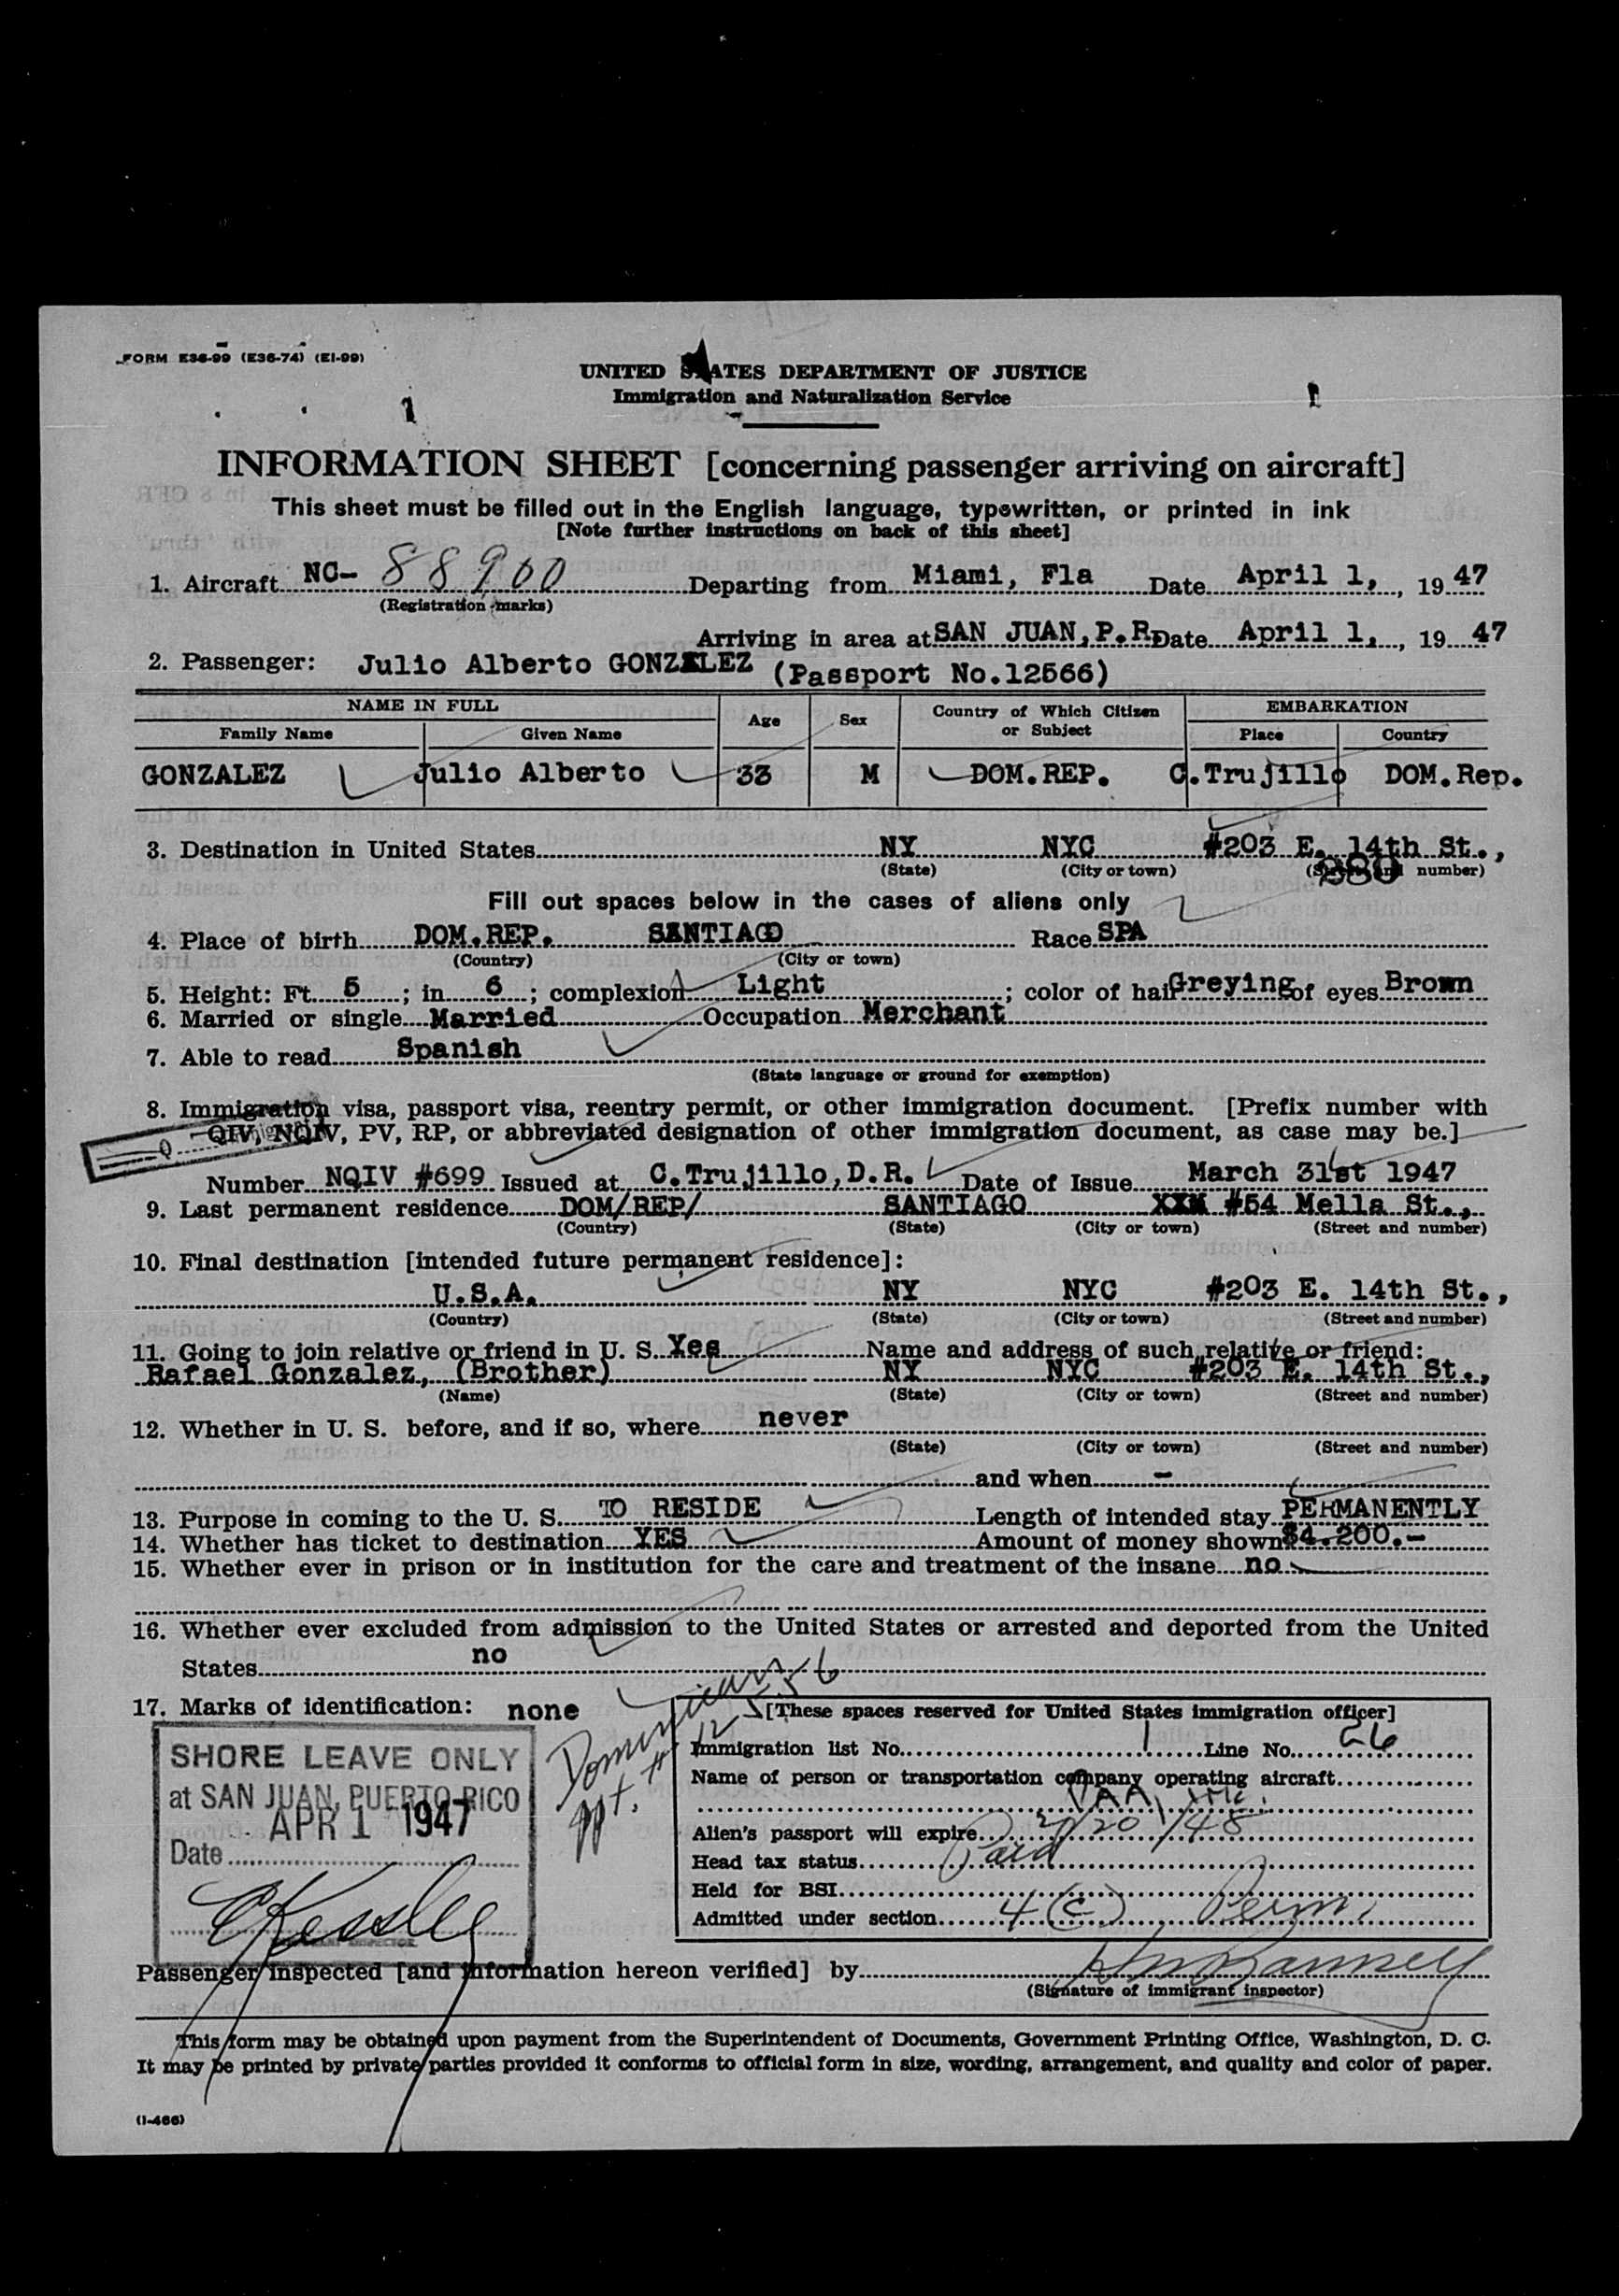 FORM E36-99 (E36-74) (EI-99)
UNITED STATES DEPARTMENT OF JUSTICE
Immigration and Naturalization Service
INFORMATION SHEET [concerning passenger arriving on aircraft]
This sheet must be filled out in the English language, typewritten, or printed in ink
[Note further instructions on back of this sheet]
1. Aircraft NC- 88900 Departing from Miami, Fla Date April 1, , 19 47
(Registration marks)
Arriving in area at SAN JUAN, P.R. Date April 1, , 19 47
2. Passenger: Julio Alberto GONZALEZ (Passport No.12566)
NAME IN FULL Age Sex Country of Which Citizen or Subject EMBARKATION
Family Name Given Name Place Country
GONZALEZ Julio Alberto 33 M DOM.REP. C.Trujillo DOM.Rep.
3. Destination in United States NY NYC #203 E. 14th St.,
(State) (City or town) (Street and number)
Fill out spaces below in the cases of aliens only
4. Place of birth DOM.REP. SANTIAGO Race SPA
(Country) (City or town)
5. Height: Ft. 5 ; in 6 ; complexion Light ; color of hair Greying of eyes Brown
6. Married or single Married Occupation Merchant
7. Able to read Spanish
(State language or ground for exemption)
8. Immigration visa, passport visa, reentry permit, or other immigration document. [Prefix number with
QIV, NQIV, PV, RP, or abbreviated designation of other immigration document, as case may be.]
Number NQIV #699 Issued at C.Trujillo, D.R. Date of Issue March 31st 1947
9. Last permanent residence DOM/REP/ SANTIAGO XXM #54 Mella St.,
(Country) (State) (City or town) (Street and number)
10. Final destination [intended future permanent residence]:
U.S.A. NY NYC #203 E. 14th St.,
(Country) (State) (City or town) (Street and number)
11. Going to join relative or friend in U. S. Yes Name and address of such relative or friend:
Rafael Gonzalez, (Brother) NY NYC #203 E. 14th St.,
(Name) (State) (City or town) (Street and number)
12. Whether in U. S. before, and if so, where never
(State) (City or town) (Street and number)
and when -
13. Purpose in coming to the U. S. TO RESIDE Length of intended stay PERMANENTLY
14. Whether has ticket to destination YES Amount of money shown $4.200.-
15. Whether ever in prison or in institution for the care and treatment of the insane no
16. Whether ever excluded from admission to the United States or arrested and deported from the United
States no
17. Marks of identification: none
Dominican
ppt. #
SHORE LEAVE ONLY
at SAN JUAN, PUERTO RICO
APR 1 1947
Date
[These spaces reserved for United States immigration officer]
Immigration list No. 1 Line No. 26
Name of person or transportation company operating aircraft
PAA, Inc.
Alien's passport will expire 2/20/48
Head tax status Paid
Held for BSI
Admitted under section 4(c) Perm.
Passenger inspected [and information hereon verified] by
(Signature of immigrant inspector)
This form may be obtained upon payment from the Superintendent of Documents, Government Printing Office, Washington, D. C.
It may be printed by private parties provided it conforms to official form in size, wording, arrangement, and quality and color of paper.
(I-466)